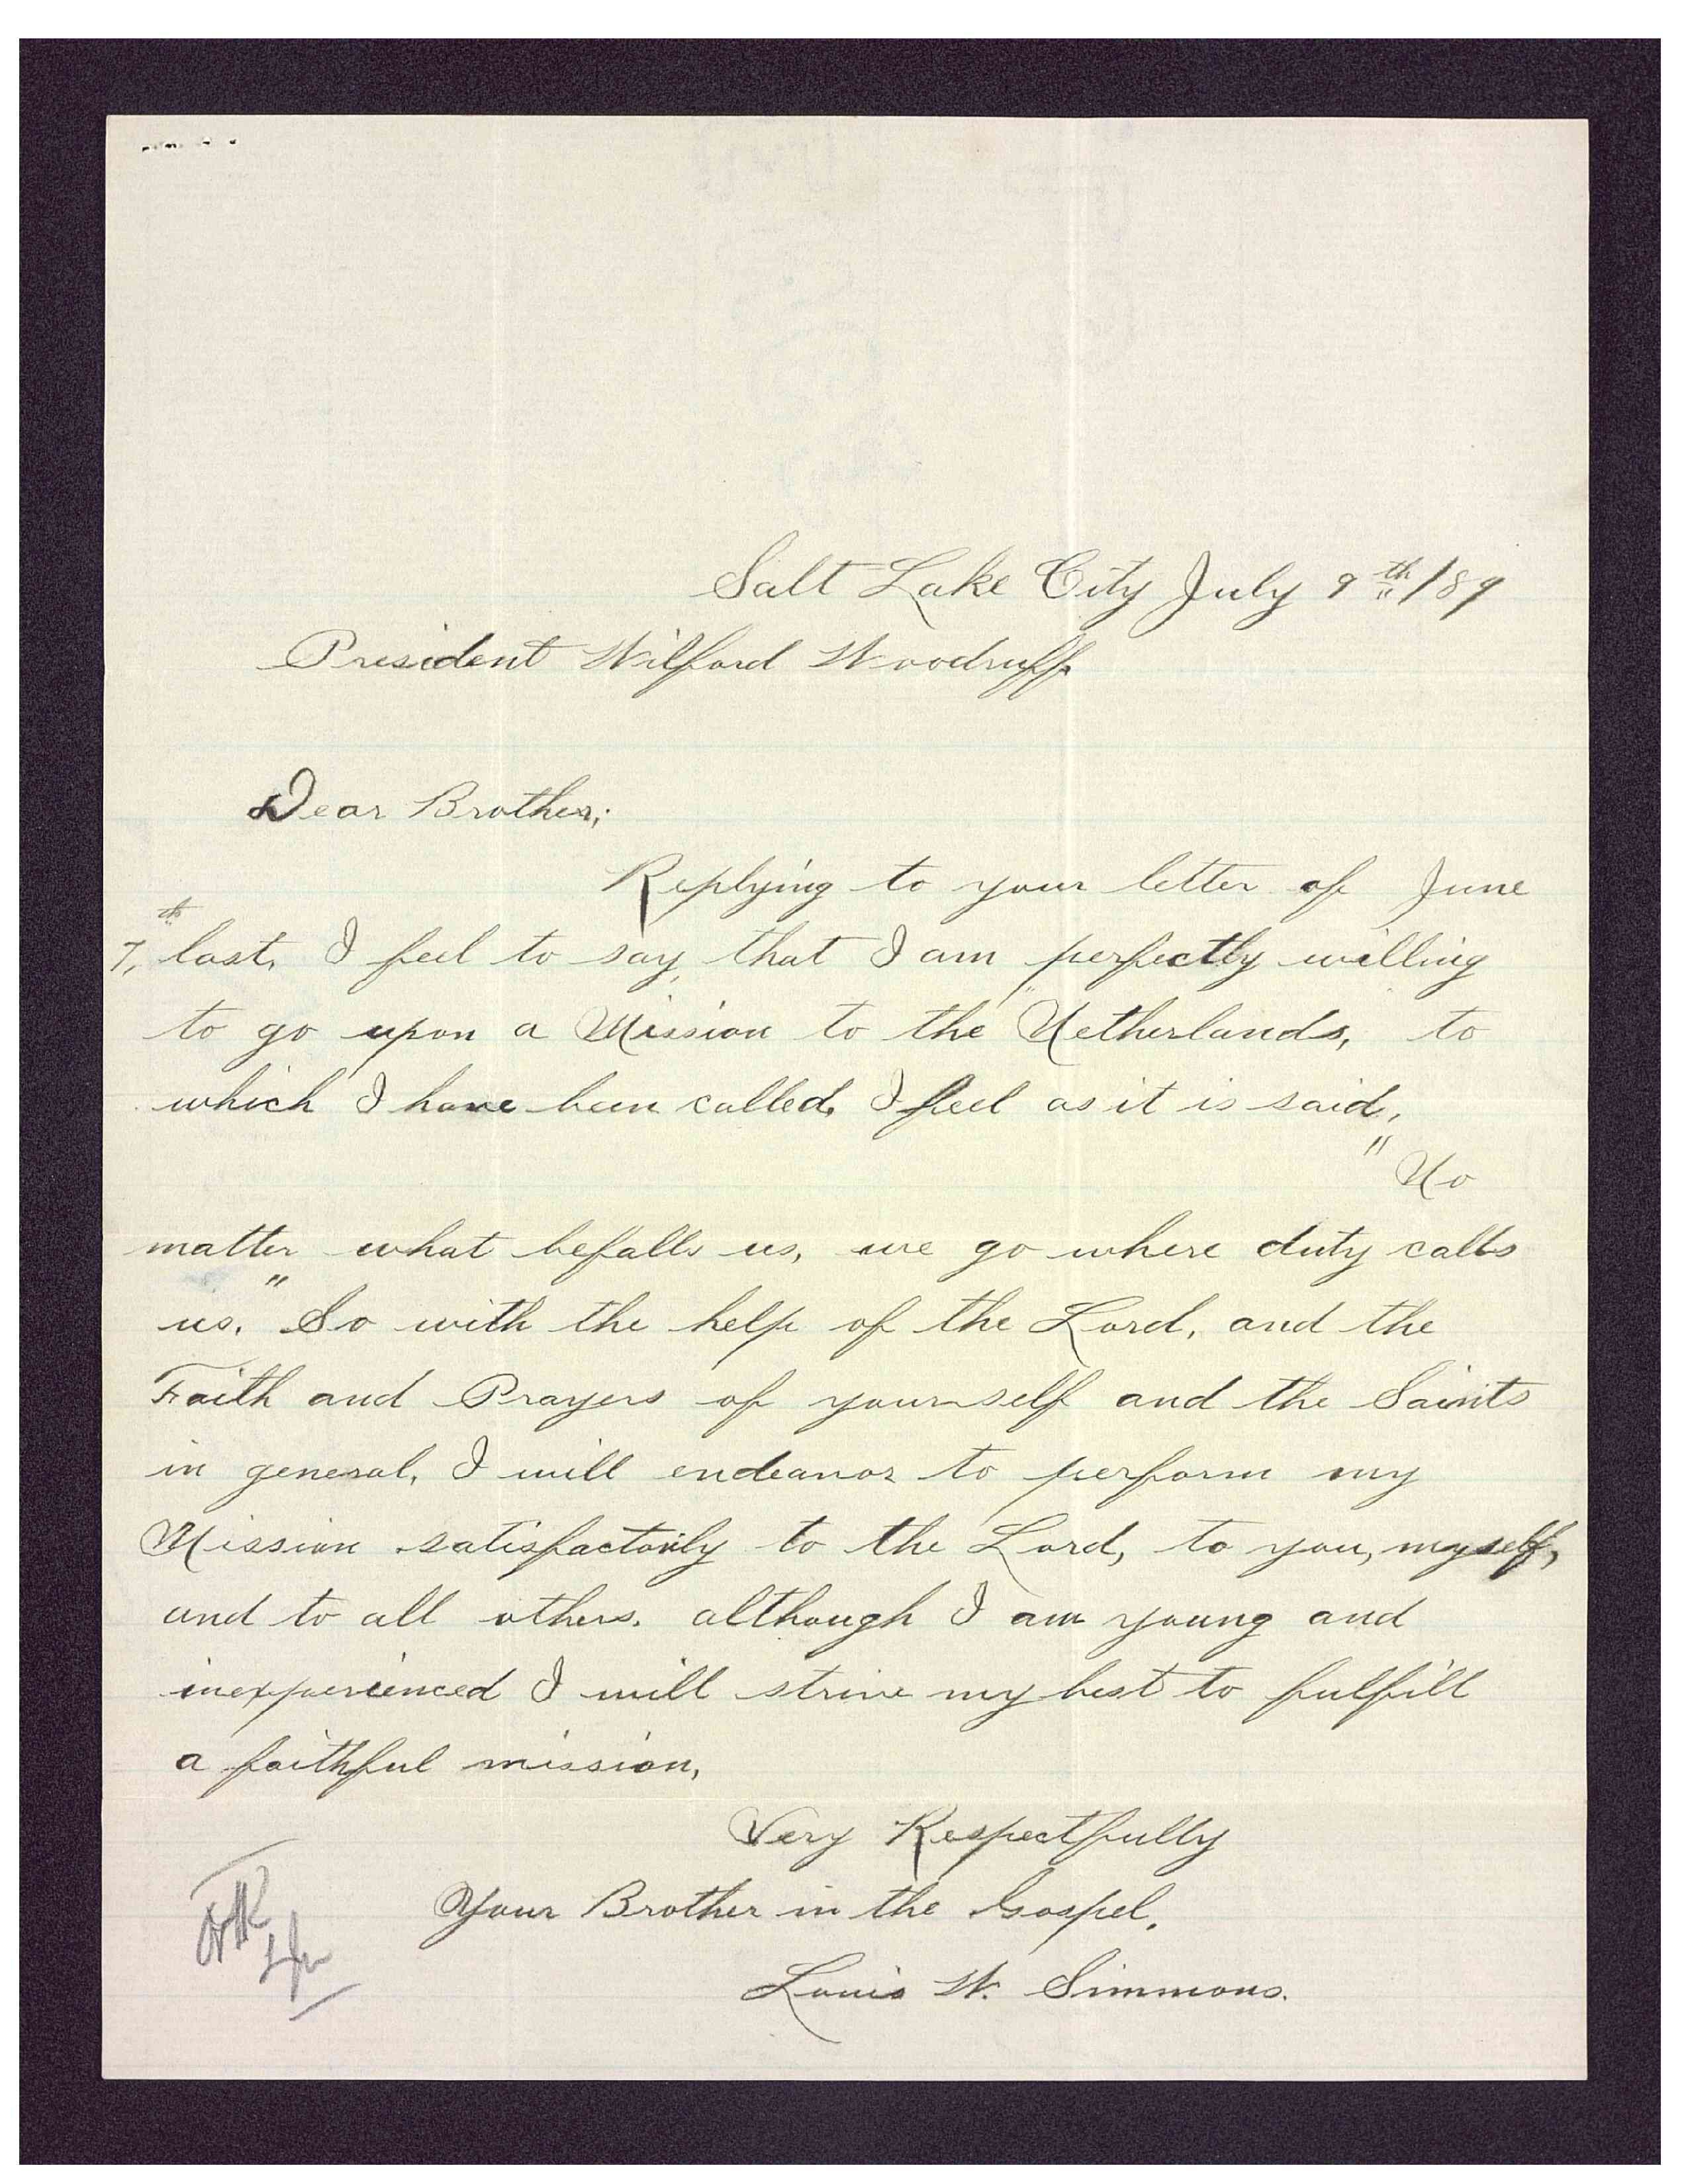 Salt Lake City July 9th/89
President Wilford Woodruff
Dear Brother;
Replying to your letter of June
7th, last, I feel to say, that I am perfectly willing
to go upon a Mission to the "Netherlands, to
which I have been called, I feel as it is said,
"No
matter what befalls us, we go where duty calls
us." So with the help of the Lord, and the
Faith and Prayers of yourself and the Saints
in general, I will endeavor to perform my
Mission satisfactorily to the Lord, to you, myself,
and to all others. although I am young and
inexperienced I will strive my best to fulfill
a faithful mission,
Very Respectfully
Your Brother in the Gospel,
Louis W. Simmons.